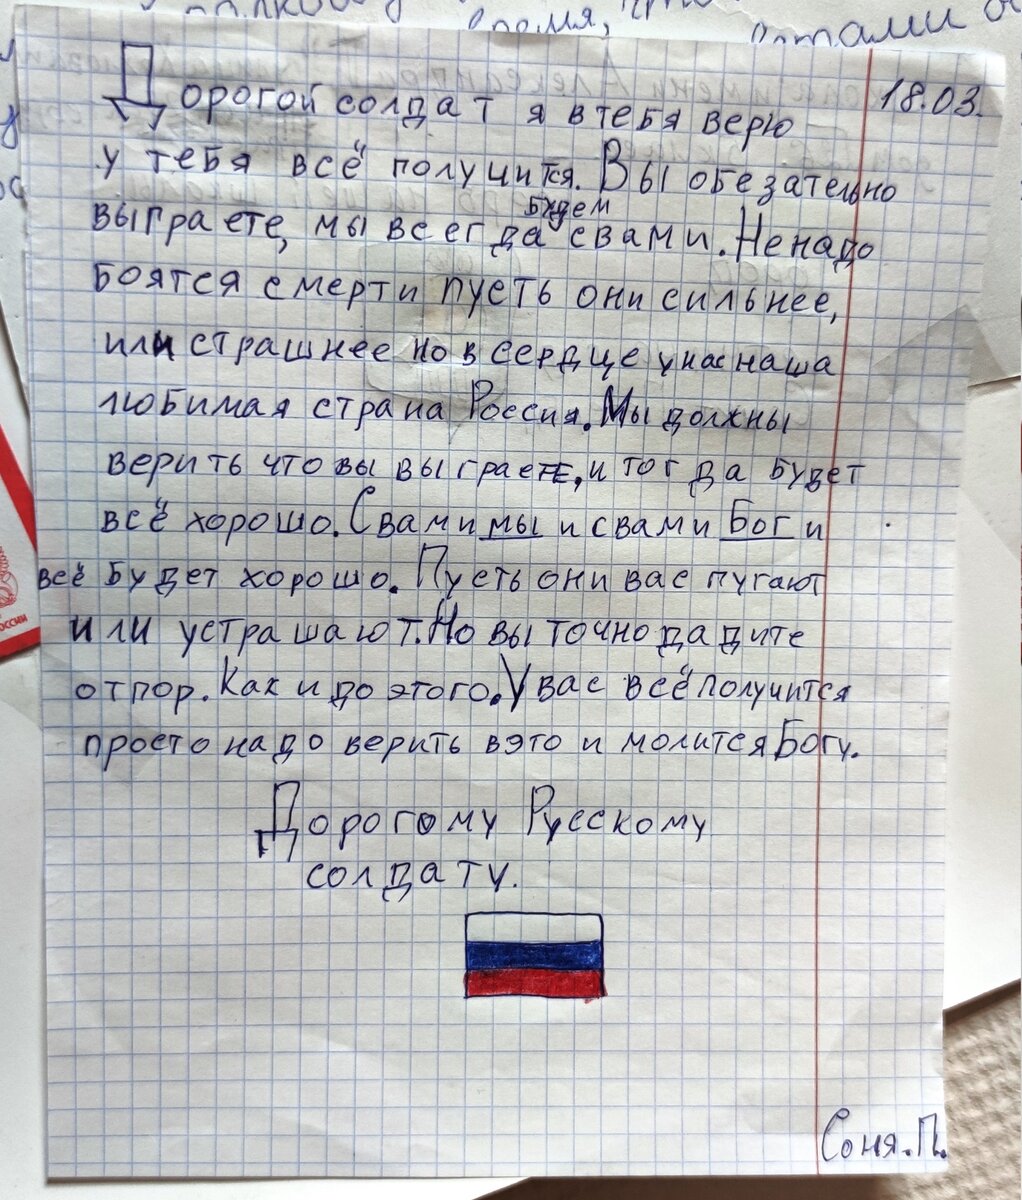 время,
18.03.
Дорогой солдат я в тебя верю
у тебя всё получится. Вы обезательно
будем
выграете, мы всегда свами. Ненадо
боятся смерти пусть они сильнее,
или страшнее но в сердце у нас наша
любимая страна Россия. Мы должны
верить что вы выграете, и тогда будет
всё хорошо. Свами мы и свами Бог и
всё будет хорошо. Пусть они вас пугают
или устрашают. Но вы точно дадите
отпор. Как и до этого. У вас всё получится
просто надо верить вэто и молится Богу.
Дорогому Русскому
солдату.
Соня.П.
России